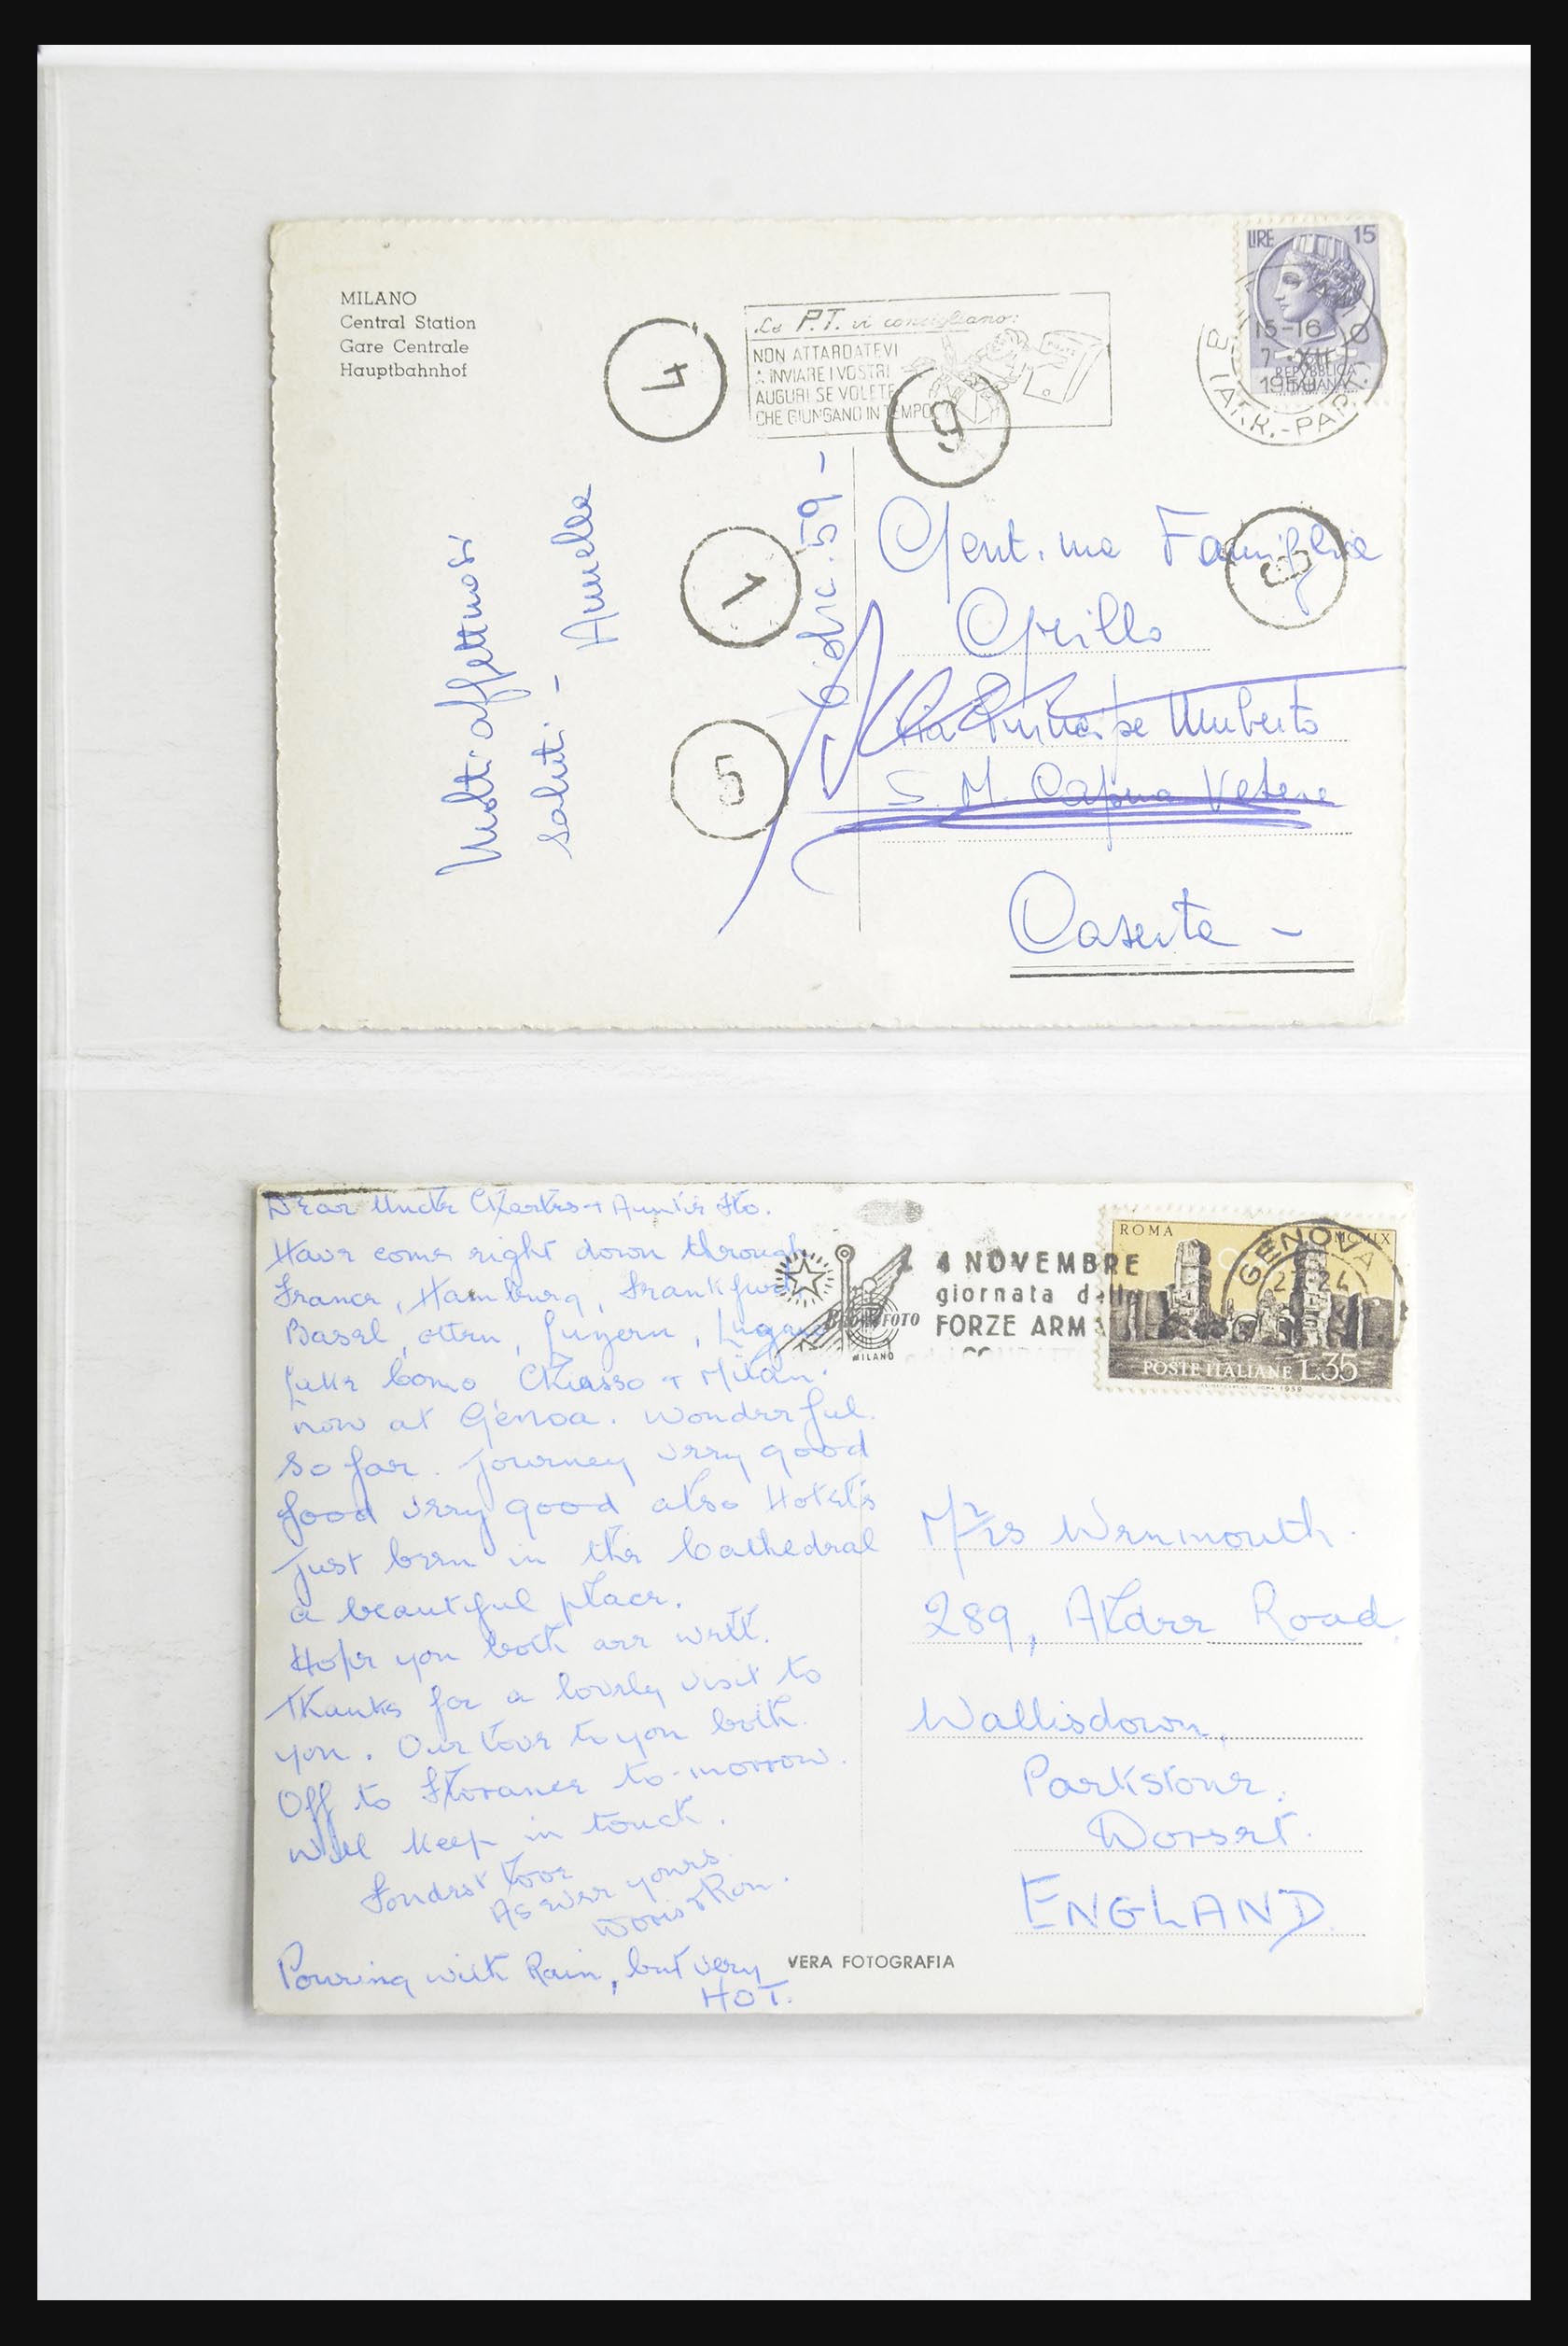 MILANO
Central Station
Gare Centrale
Hauptbahnhof
4
Le P.T. vi consigliano:
NON ATTARDATEVI
A INVIARE I VOSTRI
AUGURI SE VOLETE
CHE GIUNGANO IN TEMPO
9
LIRE 15
15-16
7 XII
1959
REPVBBLICA
ITALIANA
1
8
5
Molti affettuosi
saluti -
Annella
6 dic. 59 -
Gent.ma Famiglia
Grillo
Via Principe Umberto
S. M. Capua Vetere
Caserta -
Dear Uncle Charles + Auntie Flo.
Have come right down through
France, Hamburg, Frankfurt,
Basel, Olten, Luzern, Lugano
Lake Como, Chiasso + Milan.
now at Genoa. Wonderful
so far. Journey very good
food very good also Hotels
Just been in the Cathedral
a beautiful place.
Hope you both are well.
Thanks for a lovely visit to
you. Our love to you both.
Off to Florance to-morrow.
Will keep in touch.
Fondest love
As ever yours
Doris & Ron.
Pouring with Rain, but very
HOT.
4 NOVEMBRE
giornata delle
FORZE ARM
FOTO
MILANO
ROMA MCMLIX
GENOVA
24
POSTE ITALIANE L.35
Mr/rs Wenmouth.
289, Alder Road,
Wallisdown,
Parkstone,
Dorset.
ENGLAND
VERA FOTOGRAFIA